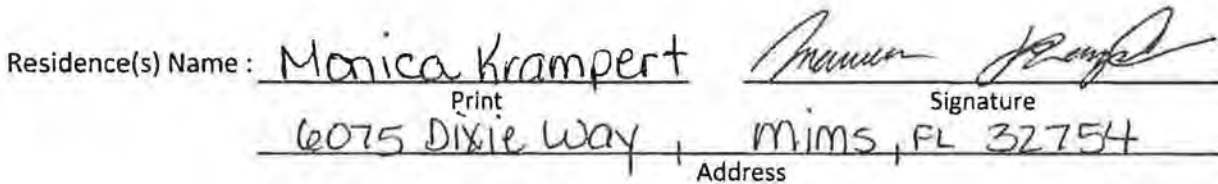 Residence(s) Name : Monica Krampert
Print Signature
6075 Dixie Way, Mims, FL 32754
Address